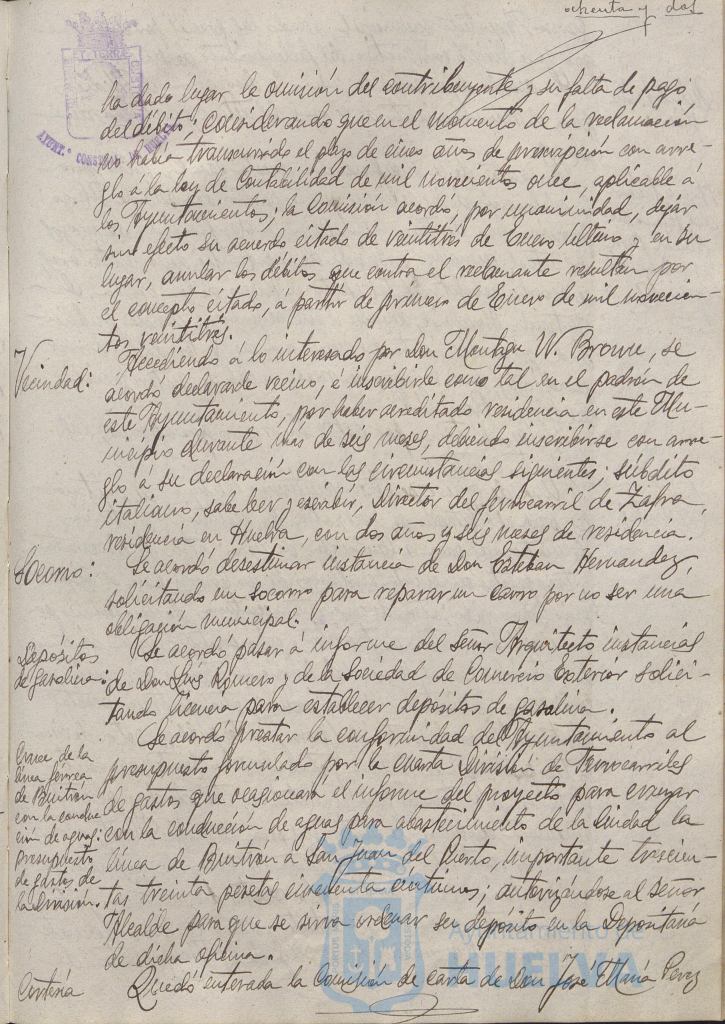 ochenta y dos
ha dado lugar la omisión del contribuyente y su falta de pago
del débito; considerando que en el momento de la reclamación
no había transcurrido el plazo de cinco años de prescripción con arre-
glo á la ley de Contabilidad de mil novecientos once, aplicable á
los Ayuntamientos; la Comisión acordó, por unanimidad, dejar
sin efecto su acuerdo citado de veintitrés de Enero último y en su
lugar, anular los débitos que contra el reclamante resultan por
el concepto citado, á partir de primero de Enero de mil novecien-
tos veintitrés.
Vecindad:
Accediendo á lo interesado por Don Montagu W. Brown, se
acordó declararle vecino, é inscribirle como tal en el padrón de
este Ayuntamiento, por haber acreditado residencia en este Mu-
nicipio durante más de seis meses, debiendo inscribirse con arre-
glo á su declaración con las circunstancias siguientes; súbdito
italiano, sabe leer y escribir, Director del ferrocarril de Zafra,
residencia en Huelva, con dos años y seis meses de residencia.
Socorro:
Se acordó desestimar instancia de Don Esteban Hernandez,
solicitando un socorro para reparar un carro por no ser una
obligación municipal.
Depósitos
de gasolina:
Se acordó pasar á informe del señor Arquitecto instancias
de Don Luis Romero y de la Sociedad de Comercio Exterior solici-
tando licencia para establecer depósitos de gasolina.
Cruce de la
línea férrea
de Buitrón
con la conduc-
ción de aguas:
presupuesto
de gastos de
la División.
Se acordó prestar la conformidad del Ayuntamiento al
presupuesto formulado por la cuarta División de Ferrocarriles
de gastos que ocasionara el informe del proyecto para cruzar
con la conducción de aguas para abastecimiento de la Ciudad la
línea de Buitrón a San Juan del Puerto, importante trescien-
tas treinta pesetas cincuenta centimos; autorizándose al señor
Alcalde para que se sirva ordenar su depósito en la Depositaría
de dicha oficina.
Cortesía
Quedó enterada la Comisión de carta de Don José María Perez
Ayuntamiento de
HUELVA